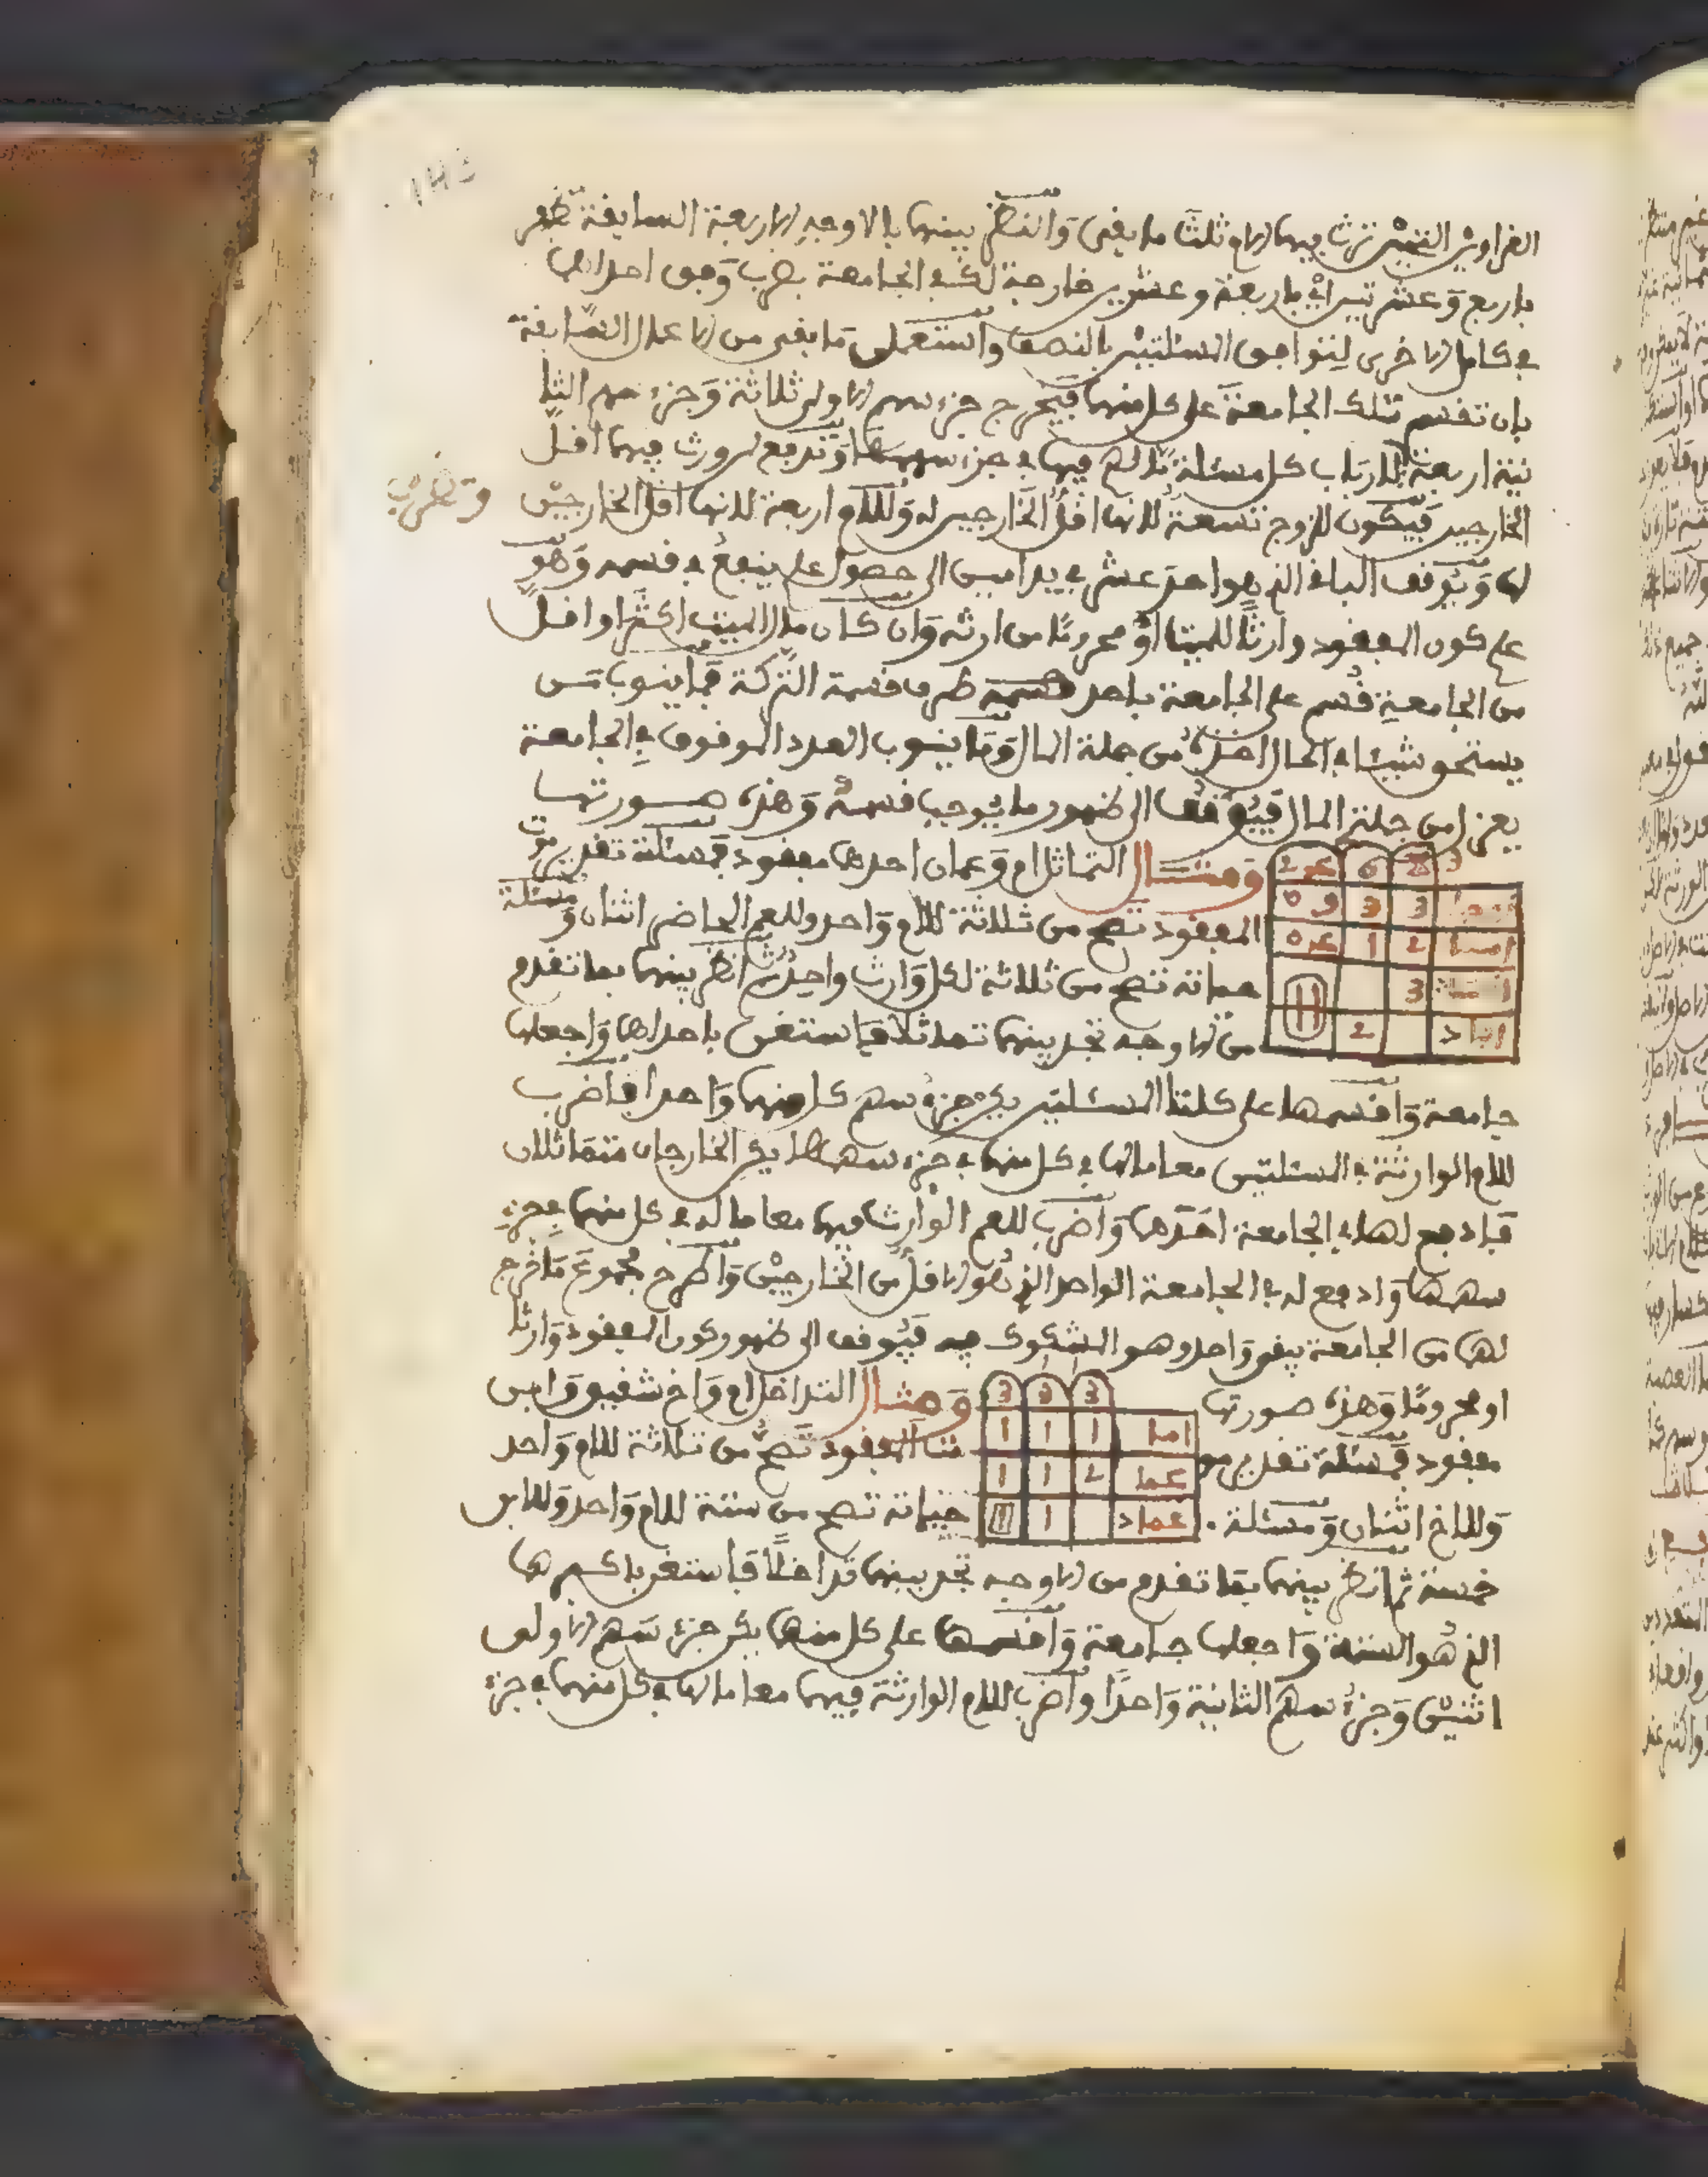 الغراوين التي ترث فيها الام ثلث ما بقي والنظر بينهما بالاوجه الاربعة السابقة تظفر
باربع وعشرين اي باربعة وعشرين خارجة لك في الجامعة بضرب وفق احداهما
في كامل الاخرى لتوافق المسئلتين بالنصف واستعمل ما بقي من الاعمال السابقة
بان تقسم تلك الجامعة على كل منهما فيخرج جزء سهم الاولى ثلاثة وجزء سهم الثا
نية اربعة لارباب كل مسئلة ما لهم فيها في جزء سهمها وتدفع لمن ورث فيهما اقل
وتضرب
الخارجين فيكون للزوج تسعة لانها اقل الخارجين له وللام اربعة لانها اقل الخارجين
لها ويوقف الباقي الذي هو احد عشر في يد امين الى حصول علم ينفع في قسمه وهو
علم كون المفقود وارثا للميت او محروما من ارثه وان كان مال الميت اكثر او اقل
من الجامعة قسم على الجامعة باحد طرق قسمة التركة فما ينوب من
يستحق شيئا في الحال اخذه من جملة المال وما ينوب العدد الموقوف في الجامعة
يعزل من جملة المال فيوقف الى ظهور ما يوجب قسمه وهذه صورتها
ومثال التماثل ام وعمان احدهما مفقود فمسئلة تقدير موت
المفقود تصح من ثلاثة للام واحد وللعم الحاضر اثنان ومسئلة
حياته تصح من ثلاثة لكل وارث واحد ثم انظر بينهما بما تقدم
من الاوجه تجد بينهما تماثلا فاستغن باحداهما واجعلها
جامعة واقسمها على كلتا المسئلتين يكن جزء سهم كل منهما واحدا فاضرب
للام الوارثة في المسئلتين معا ما لها في كل منهما في جزء سهمها يكن الخارجان متماثلان
فادفع لها في الجامعة احدهما واضرب للعم الوارث فيهما معا ما له في كل منهما في جزء
سهمها وادفع له في الجامعة الواحد الذي هو الاقل من الخارجين واطرح مجموع ما خرج
لهما من الجامعة يبقى واحد وهو المشكوك فيه فيوقف الى ظهور كون المفقود وارثا
او محروما وهذه صورتها ومثال التداخل ام واخ شقيق وابن
مفقود فمسئلة تقدير موت المفقود تصح من ثلاثة للام واحد
وللاخ اثنان ومسئلة حياته تصح من ستة للام واحد وللابن
خمسة ثم انظر بينهما بما تقدم من الاوجه تجد بينهما تداخلا فاستغن باكبرهما
الذي هو الستة واجعلها جامعة واقسمها على كل منهما يكن جزء سهم الاولى
اثنين وجزء سهم الثانية واحدا واضرب للام الوارثة فيهما معا ما لها في كل منهما في جزء